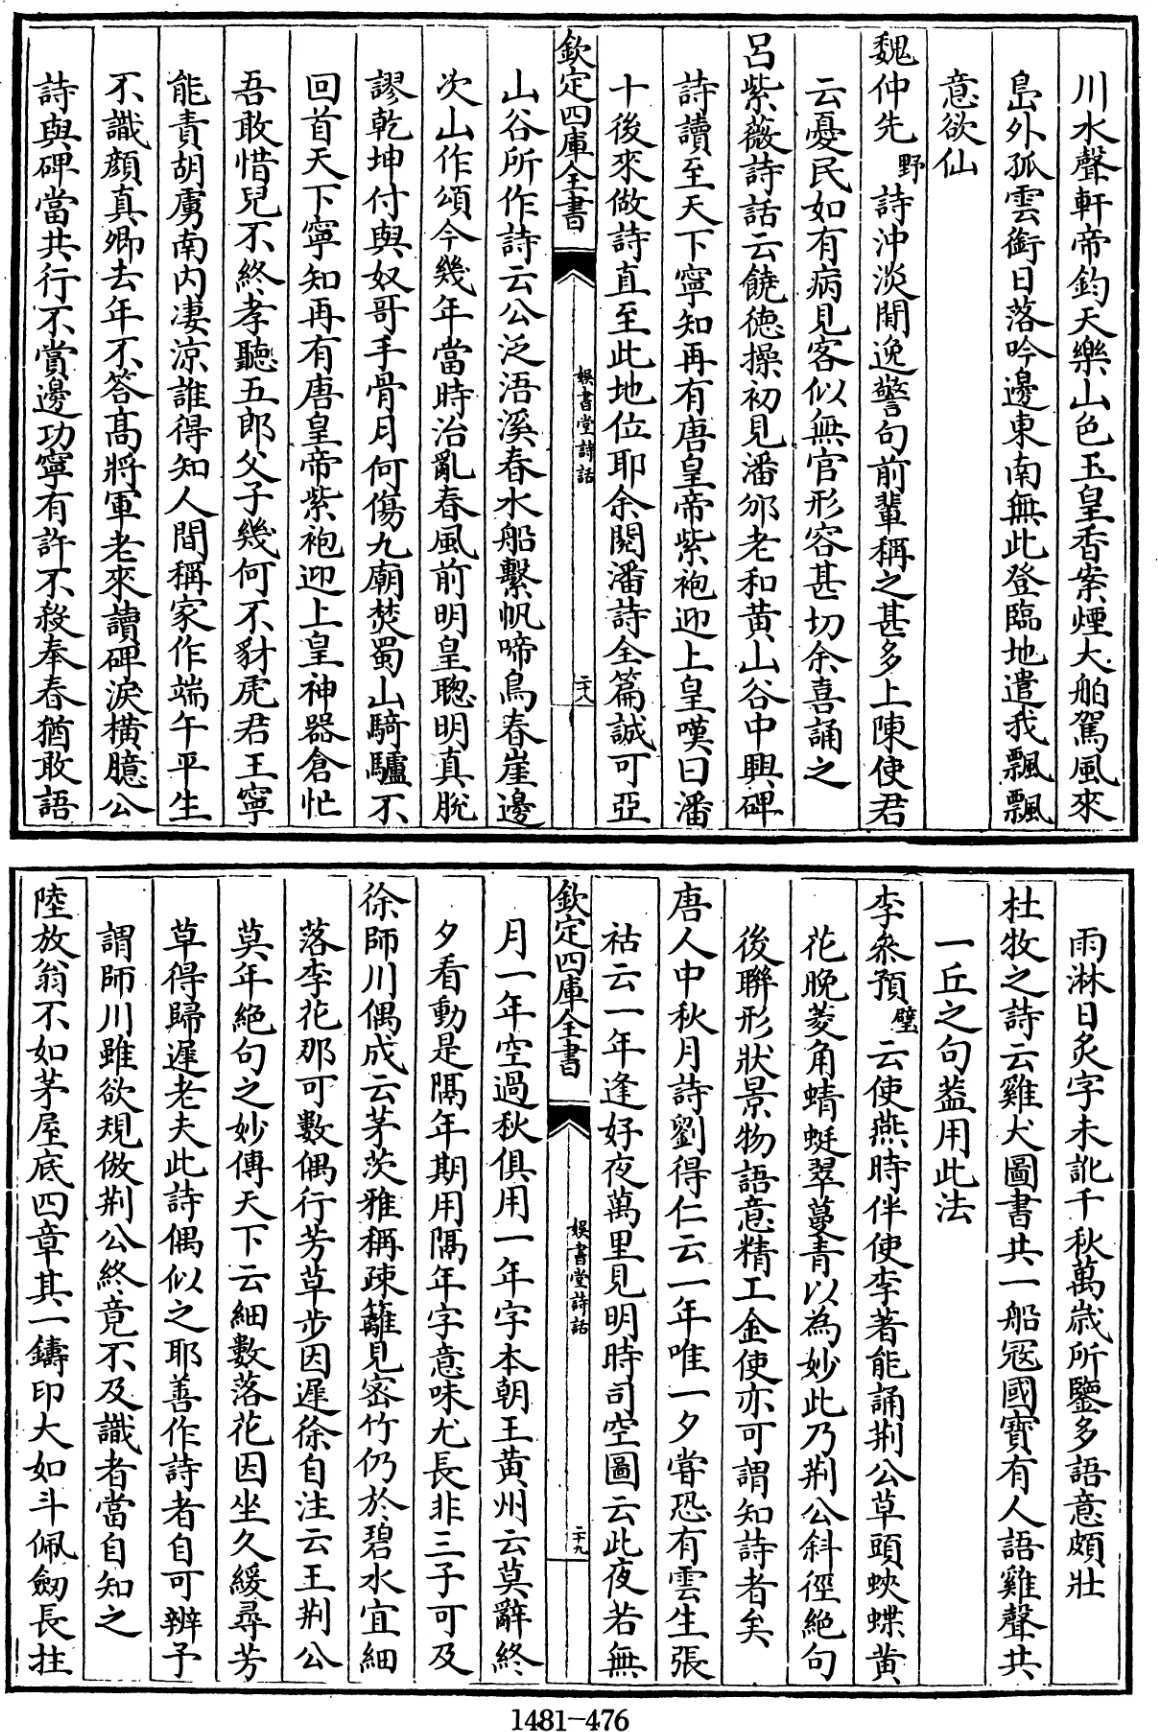 川水聲軒帝鈞天樂山色玉皇香案煙大舶駕風來
島外孤雲銜日落吟邊東南無此登臨地遣我飄飄
意欲仙
魏仲先野詩沖淡閒逸警句前輩稱之甚多上陳使君
云憂民如有病見客似無官形容甚切余喜誦之
呂紫薇詩話云饒德操初見潘邠老和黃山谷中興碑
詩讀至天下寧知再有唐皇帝紫袍迎上皇嘆曰潘
十後來做詩直至此地位耶余閱潘詩全篇誠可亞
欽定四庫全書
娛書堂詩話
二十八
山谷所作詩云公泛浯溪春水船繫帆啼鳥春崖邊
次山作頌今幾年當時治亂春風前明皇聰明真脫
謬乾坤付與奴哥手骨月何傷九廟焚蜀山騎驢不
回首天下寧知再有唐皇帝紫袍迎上皇神器倉忙
吾敢惜兒不終孝聽五郎父子幾何不豺虎君王寧
能責胡虜南内凄涼誰得知人間稱家作端午平生
不識顏真卿去年不答高將軍老來讀碑淚橫臆公
詩與碑當共行不賞邊功寧有許不殺奉春猶敢語
雨淋日炙字未訛千秋萬歲所鑒多語意頗壯
杜牧之詩云雞犬圖書共一船冦國寶有人語雞聲共
一丘之句葢用此法
李叅預壁云使燕時伴使李著能誦荆公草頭蛺蝶黃
花晚菱角蜻蜓翠蔓青以為妙此乃荆公斜徑絶句
後聯形狀景物語意精工金使亦可謂知詩者矣
唐人中秋月詩劉得仁云一年唯一夕甞恐有雲生張
祜云一年逢好夜萬里見明時司空圖云此夜若無
欽定四庫全書
娛書堂詩話
二十九
月一年空過秋俱用一年字本朝王黃州云莫辭終
夕看動是隔年期用隔年字意味尤長非三子可及
徐師川偶成云茅茨雅稱疎籬見密竹仍於碧水宜細
落李花那可數偶行芳草步因遲徐自注云王荆公
莫年絶句之妙傳天下云細數落花因坐久緩尋芳
草得歸遲老夫此詩偶似之耶善作詩者自可辨予
謂師川雖欲規倣荆公終竟不及識者當自知之
陸放翁不如茅屋底四章其一鑄印大如斗佩劒長拄
1481-476